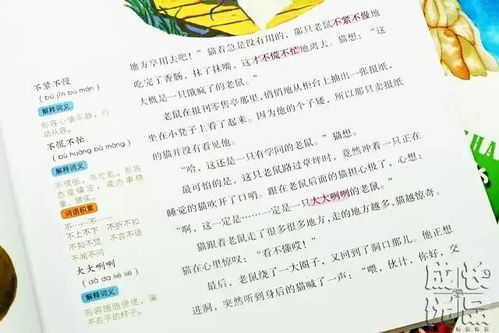 不紧不慢
（bù jǐn bù màn）
解释词义
形容心情平静，行
动从容。
不慌不忙
（bù huāng bù máng）
解释词义
不慌张，不忙乱。形容
态度镇定，或办事稳
重、踏实。
词语积累
不……不……
不上不下 不折不扣
不知不觉 不言不语
不闻不问
大大咧咧
（dà da liē liē）
解释词义
形容随随便便，满
不在乎的样子。
地方享用去吧！”猫着急是没有用的，那只老鼠不紧不慢地
吃完了香肠，抹了抹嘴，这才不慌不忙地离去。猫想：“这
大概是一只饿疯了的老鼠。”
老鼠在报刊零售亭那里，悄悄地从柜台上抽出一张报纸，
坐在小凳子上看了起来。因为他的个子矮，所以那只卖报纸
的猫并没有看见他。
“哈，这还是一只有学问的老鼠。”猫想。
最可怕的是，这只老鼠路过草坪时，竟然冲着一只正在
睡觉的猫吹开了口哨。跟在老鼠后面的猫担心极了，心想：
“啊，这一定是……一定是一只大大咧咧的老鼠。”
猫跟着老鼠走了很多很多地方，走的地方越多，猫越惊奇。
猫在心里惊叹：“看不懂哎！”
最后，老鼠绕了一大圈子，又回到了洞口那儿。他正想
进洞，突然听到身后的猫喊了一声：“喂，伙计，你好，交